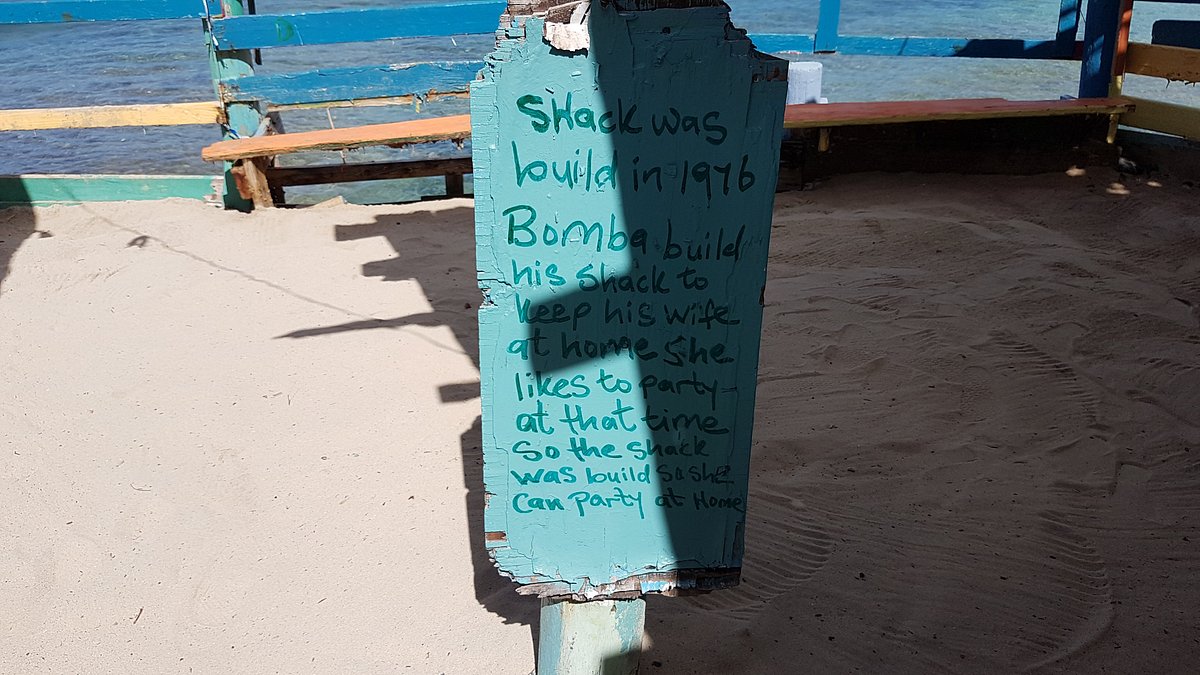 Shack was
build in 1976
Bomba build
his shack to
keep his wife
at home she
likes to party-
at that time
so the shack
was build so she
can party at Home